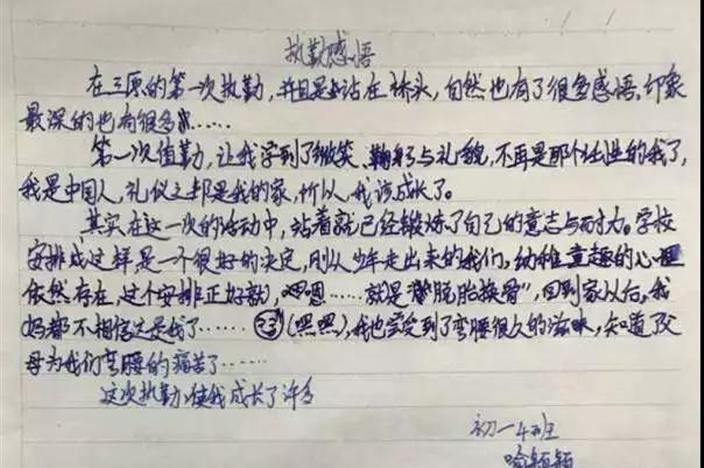 执勤感悟
在三原的第一次执勤,并且是站在桥头,自然也有了很多感悟,印象
最深的也有很多……
第一次值勤,让我学到了微笑、鞠躬与礼貌,不再是那个任性的我了,
我是中国人,礼仪之邦是我的家,所以,我该成长了。
其实在这一次的活动中,站着就已经锻炼了自己的意志与耐力。学校
安排成这样是一个很好的决定,刚从少年走出来的我们,幼稚童趣的心理
依然存在,这个安排正好,嗯嗯……就是“脱胎换骨”,回到家以后,我
妈都不相信这是我了……(嘿嘿),我也尝受到了弯腰很久的滋味,知道了父
母为我们弯腰的痛苦了……
这次执勤,使我成长了许多
初一4班
喻颖颖